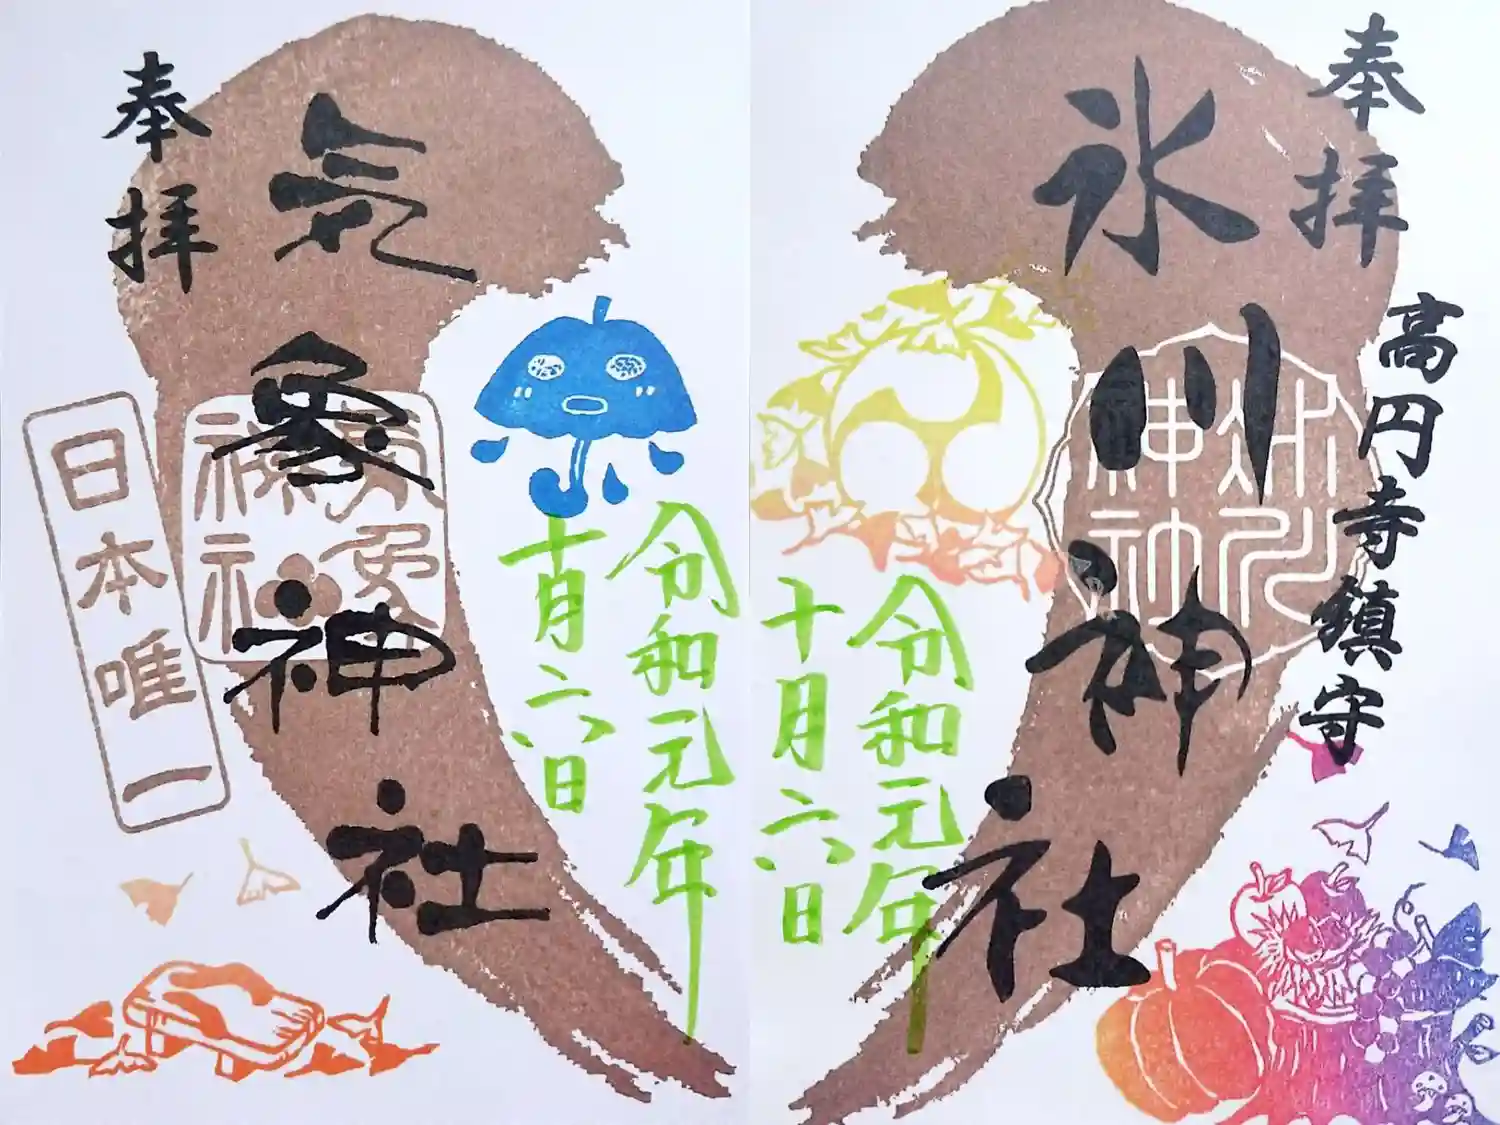 奉拝
気象神社
日本唯一
気象神社
令和元年
十月六日
奉拝
高円寺鎮守
氷川神社
氷川神社
令和元年
十月六日